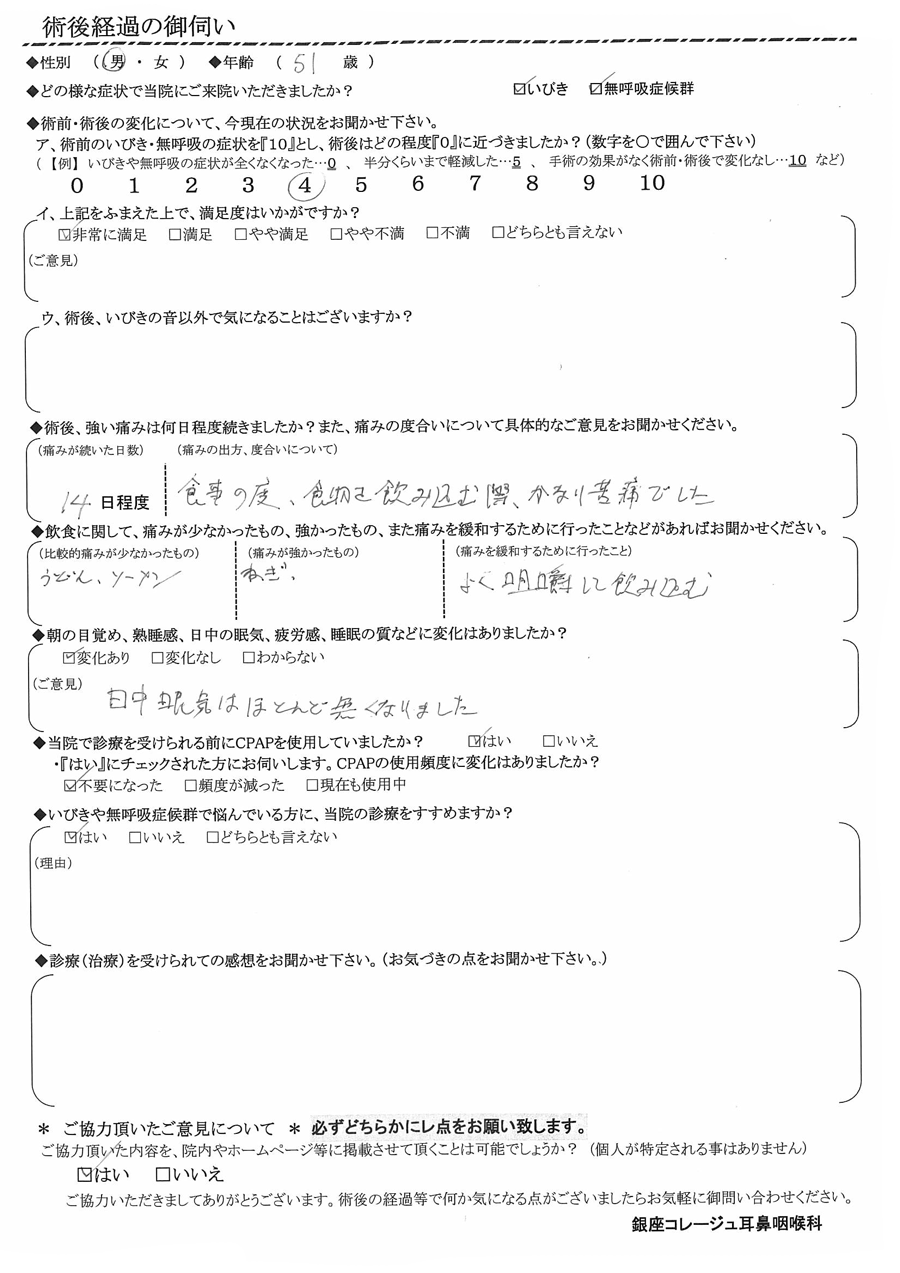 術後経過の御伺い
◆性別 (男・女) ◆年齢 (51 歳)
◆どの様な症状で当院にご来院いただきましたか? ☑いびき ☑無呼吸症候群
◆術前・術後の変化について、今現在の状況をお聞かせ下さい。
ア、術前のいびき・無呼吸の症状を『10』とし、術後はどの程度『0』に近づきましたか?(数字を○で囲んで下さい)
(【例】いびきや無呼吸の症状が全くなくなった…0 、 半分くらいまで軽減した…5 、 手術の効果がなく術前・術後で変化なし…10 など)
0 1 2 3 4 5 6 7 8 9 10
イ、上記をふまえた上で、満足度はいかがですか?
☑非常に満足 □満足 □やや満足 □やや不満 □不満 □どちらとも言えない
(ご意見)
ウ、術後、いびきの音以外で気になることはございますか?
◆術後、強い痛みは何日程度続きましたか?また、痛みの度合いについて具体的なご意見をお聞かせください。
(痛みが続いた日数) (痛みの出方、度合いについて)
14 日程度 食事の度、食物を飲み込む際、かなり苦痛でした
◆飲食に関して、痛みが少なかったもの、強かったもの、また痛みを緩和するために行ったことなどがあればお聞かせください。
(比較的痛みが少なかったもの) (痛みが強かったもの) (痛みを緩和するために行ったこと)
うどん、ソーメン ねぎ、 よく咀嚼して飲み込む
◆朝の目覚め、熟睡感、日中の眠気、疲労感、睡眠の質などに変化はありましたか?
☑変化あり □変化なし □わからない
(ご意見) 日中眠気はほとんど無くなりました
◆当院で診療を受けられる前にCPAPを使用していましたか? ☑はい □いいえ
・『はい』にチェックされた方にお伺いします。CPAPの使用頻度に変化はありましたか?
☑不要になった □頻度が減った □現在も使用中
◆いびきや無呼吸症候群で悩んでいる方に、当院の診療をすすめますか?
☑はい □いいえ □どちらとも言えない
(理由)
◆診療(治療)を受けられての感想をお聞かせ下さい。(お気づきの点をお聞かせ下さい。)
* ご協力頂いたご意見について * 必ずどちらかにレ点をお願い致します。
ご協力頂いた内容を、院内やホームページ等に掲載させて頂くことは可能でしょうか? (個人が特定される事はありません)
☑はい □いいえ
ご協力いただきましてありがとうございます。術後の経過等で何か気になる点がございましたらお気軽に御問い合わせください。
銀座コレージュ耳鼻咽喉科